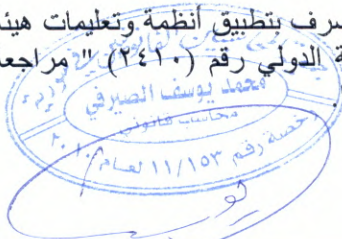 صرف بتطبيق أنظمة وتعليمات هيئة
ة الدولي رقم (٢٤١٠) " مراجعة
محمد يوسف الصيرفي
محاسب قانوني
رخصة رقم ١١/١٥٣ لعام ٢٠١٠